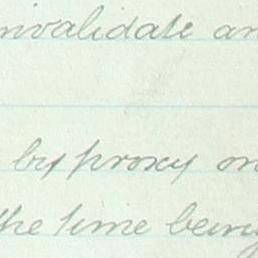 invalidate an
by proxy on
the time being